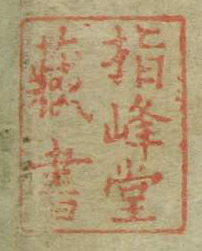 指峰堂
藏書